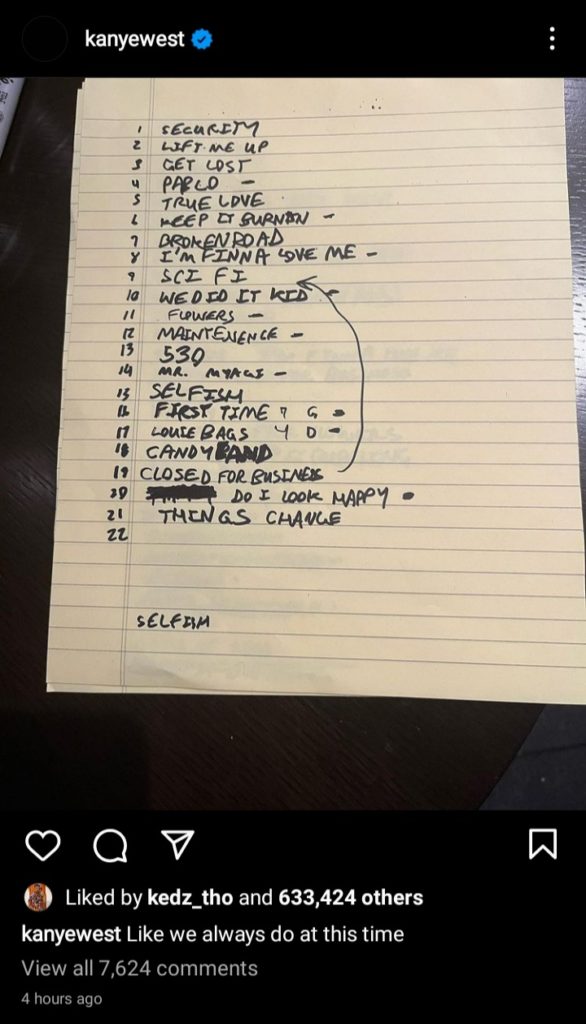 kanyewest
1 SECURITY
2 LIFT ME UP
3 GET LOST
4 PABLO -
5 TRUE LOVE
6 KEEP IT BURNIN -
7 BROKEN ROAD
8 I'M FINNA LOVE ME -
9 SCI FI
10 WE DID IT KID -
11 FLOWERS -
12 MAINTENENCE -
13 530
14 MR. MYAGI -
15 SELFISH
16 FIRST TIME 7 G -
17 LOUIE BAGS 4 D -
18 CANDYLAND
19 CLOSED FOR BUSINESS
20 DO I LOOK HAPPY •
21 THINGS CHANGE
22
SELFISH
Liked by kedz_tho and 633,424 others
kanyewest Like we always do at this time
View all 7,624 comments
4 hours ago